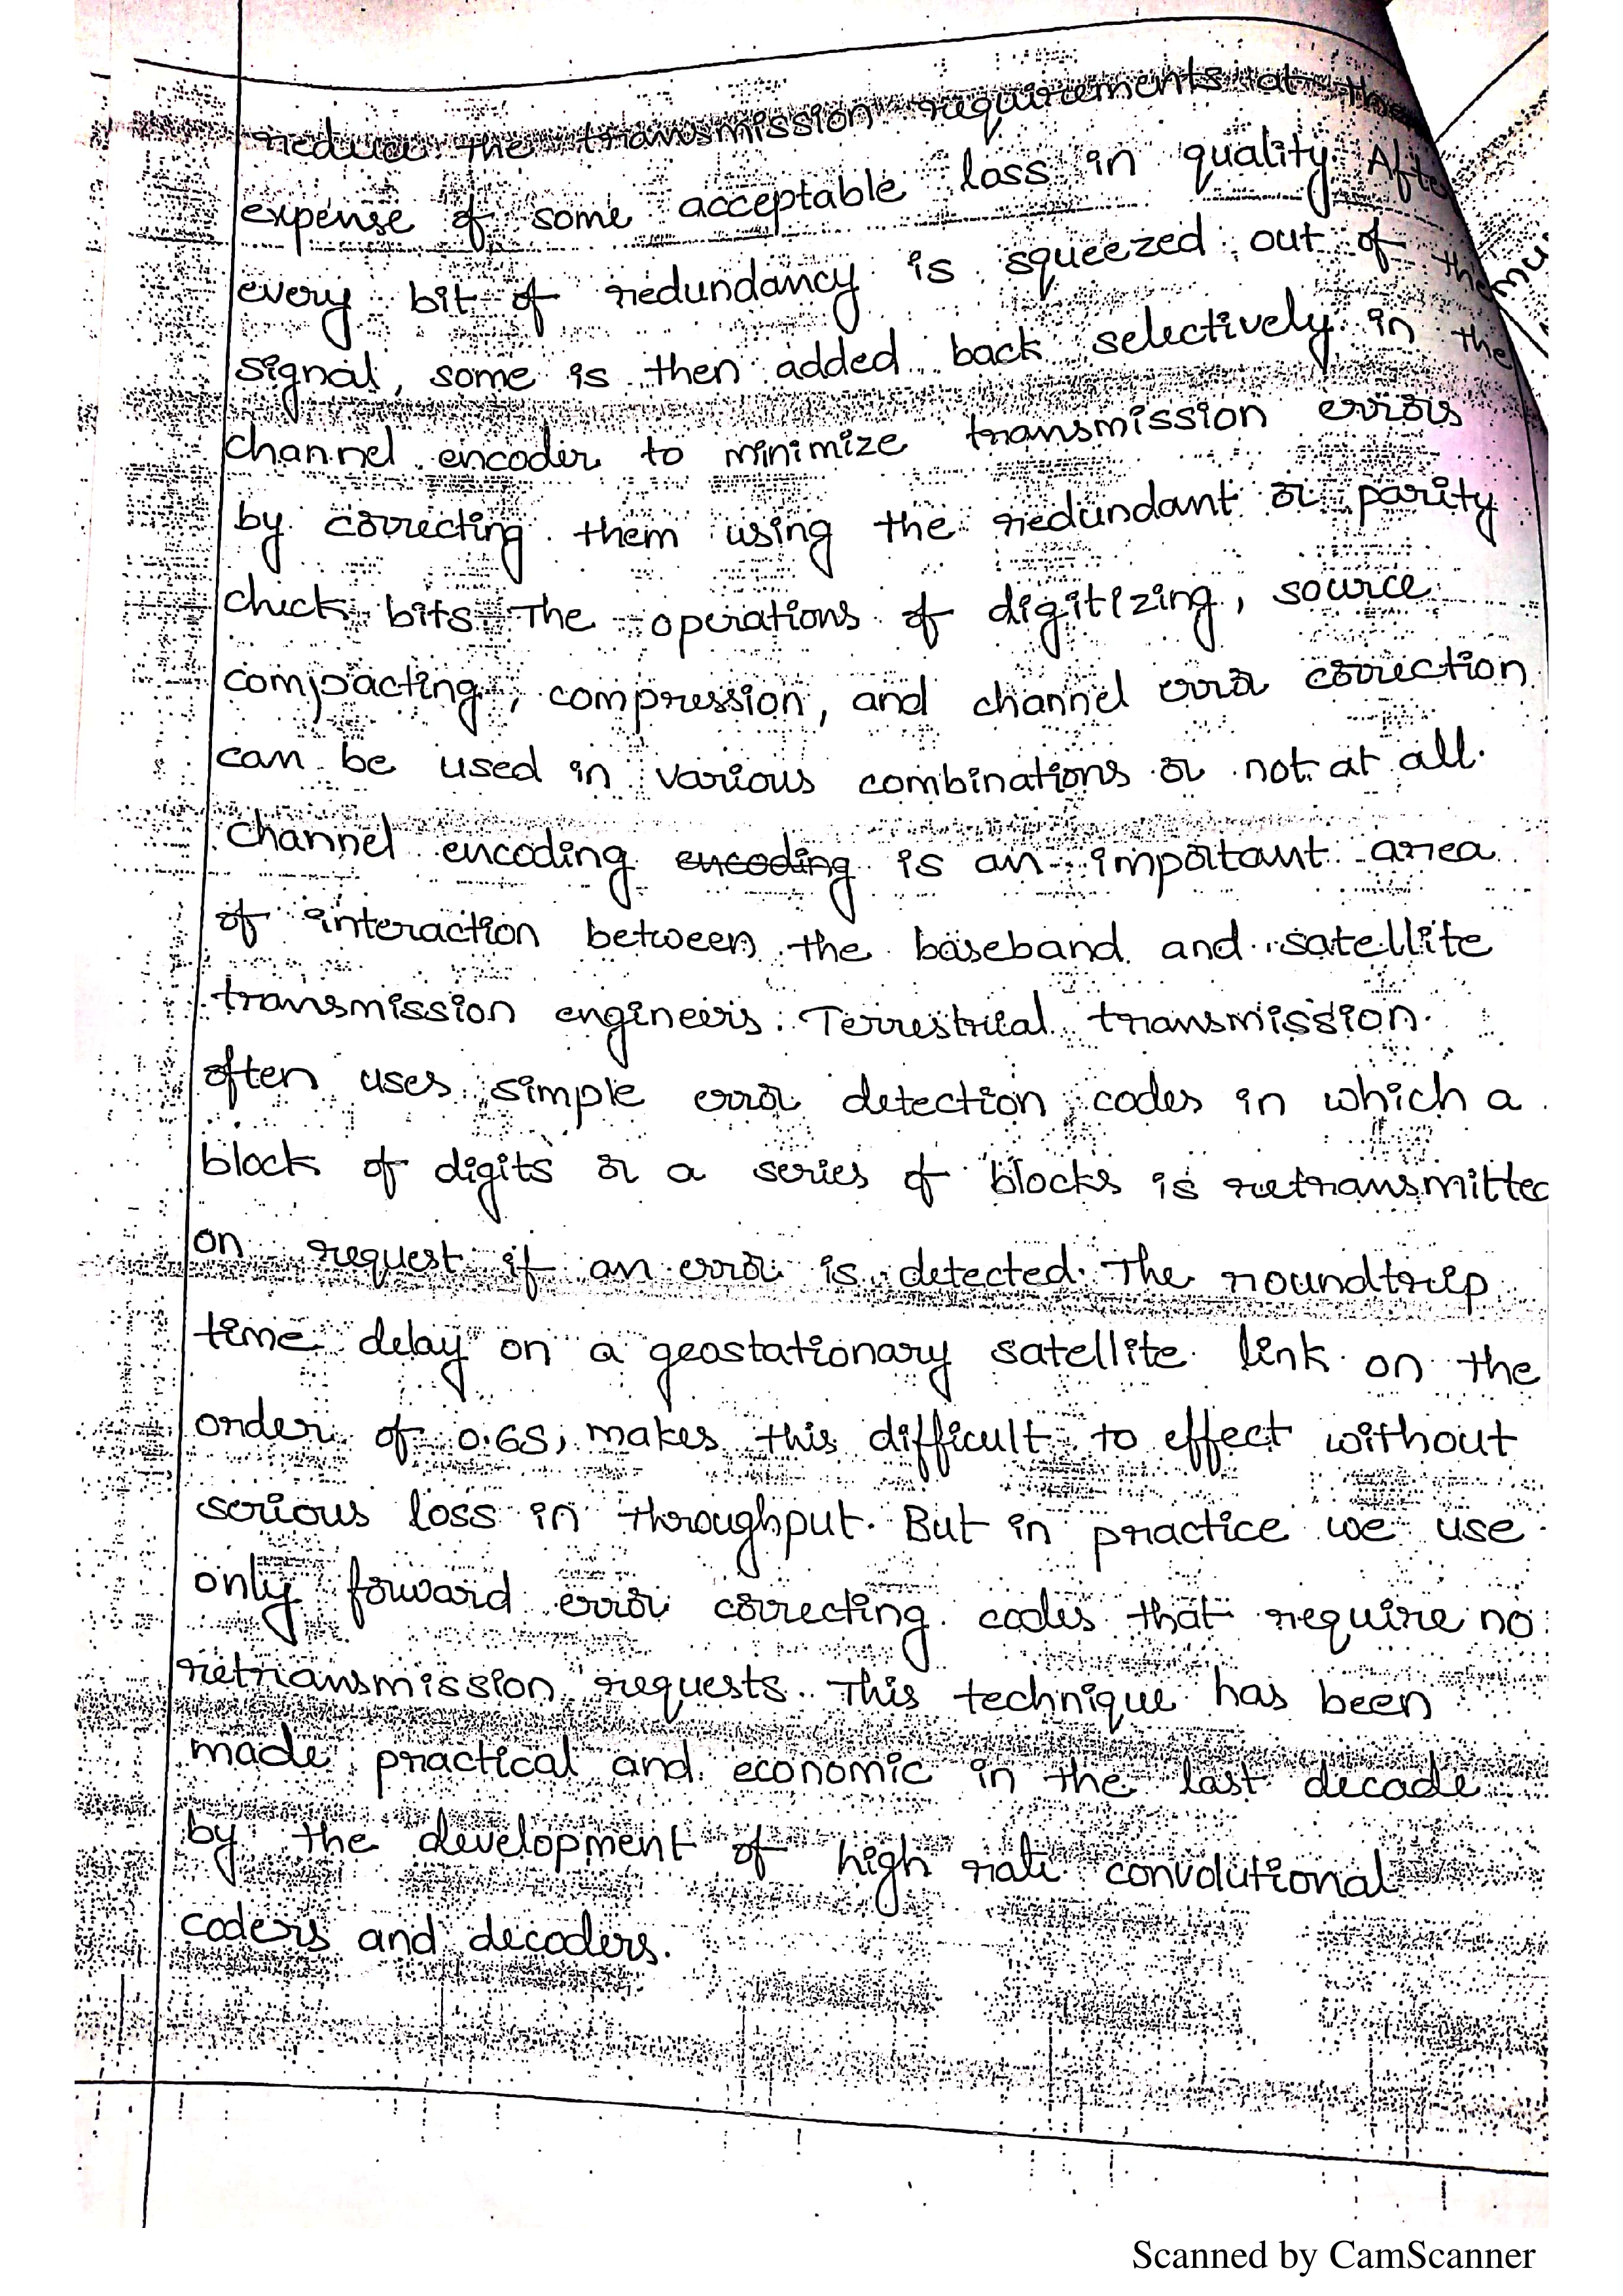 reduce the transmission requirements at the
expense of some acceptable loss in quality. After
every bit of redundancy is squeezed out of the
signal, some is then added back selectively in the
channel encoder to minimize transmission errors
by correcting them using the redundant or parity
check bits. The operations of digitizing, source
compacting, compression, and channel error correction
can be used in various combinations or not at all.
Channel encoding encoding is an important area
of interaction between the baseband and satellite
transmission engineers. Terrestrial transmission
often uses simple error detection codes in which a
block of digits or a series of blocks is retransmitted
on request if an error is detected. The roundtrip
time delay on a geostationary satellite link on the
order of 0.6S, makes this difficult to effect without
serious loss in throughput. But in practice we use
only forward error correcting codes that require no
retransmission requests. This technique has been
made practical and economic in the last decade
by the development of high rate convolutional
coders and decoders.
Scanned by CamScanner